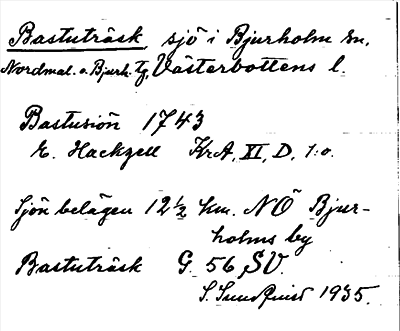 Bastuträsk, sjö i Bjurholm sn.
Nordmal. o. Bjurh. tg. Västerbottens l.
Bastusiön 1743
E. Hackzell KrA, XI, D, 1:o.
Sjön belägen 12½ km. NÖ Bjur-
holms by
Bastuträsk G. 56 SV.
S. Sundquist 1935.